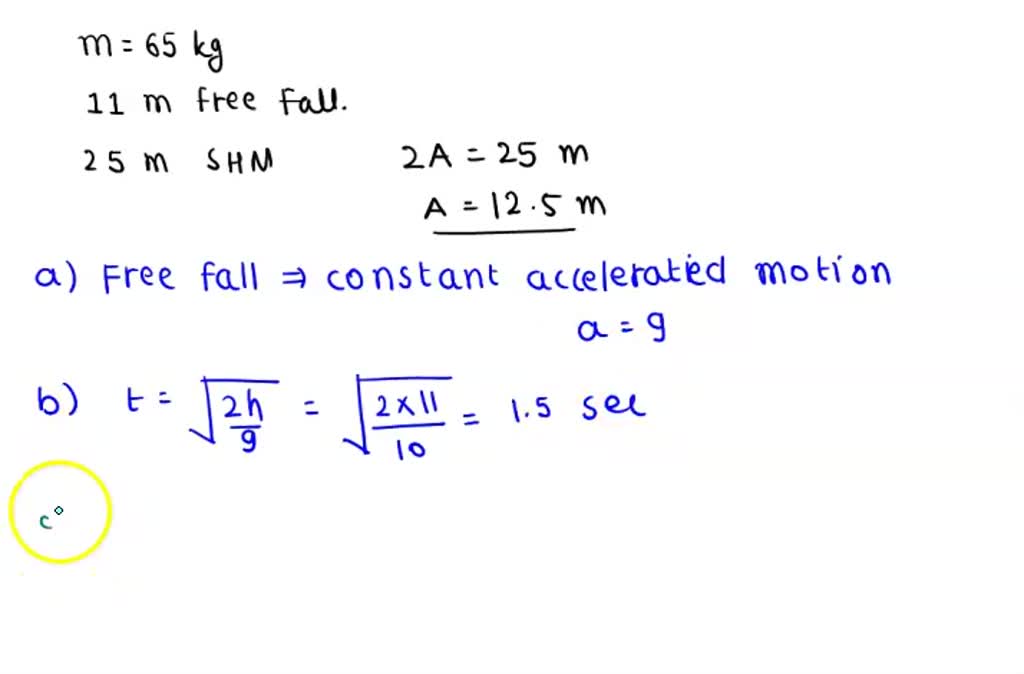 m = 65 kg
11 m free fall.
25 m SHM 2A = 25 m
A = 12.5 m
a) Free fall ⇒ constant accelerated motion
a = g
b) t = √(2h/g) = √(2×11/10) = 1.5 sec
c